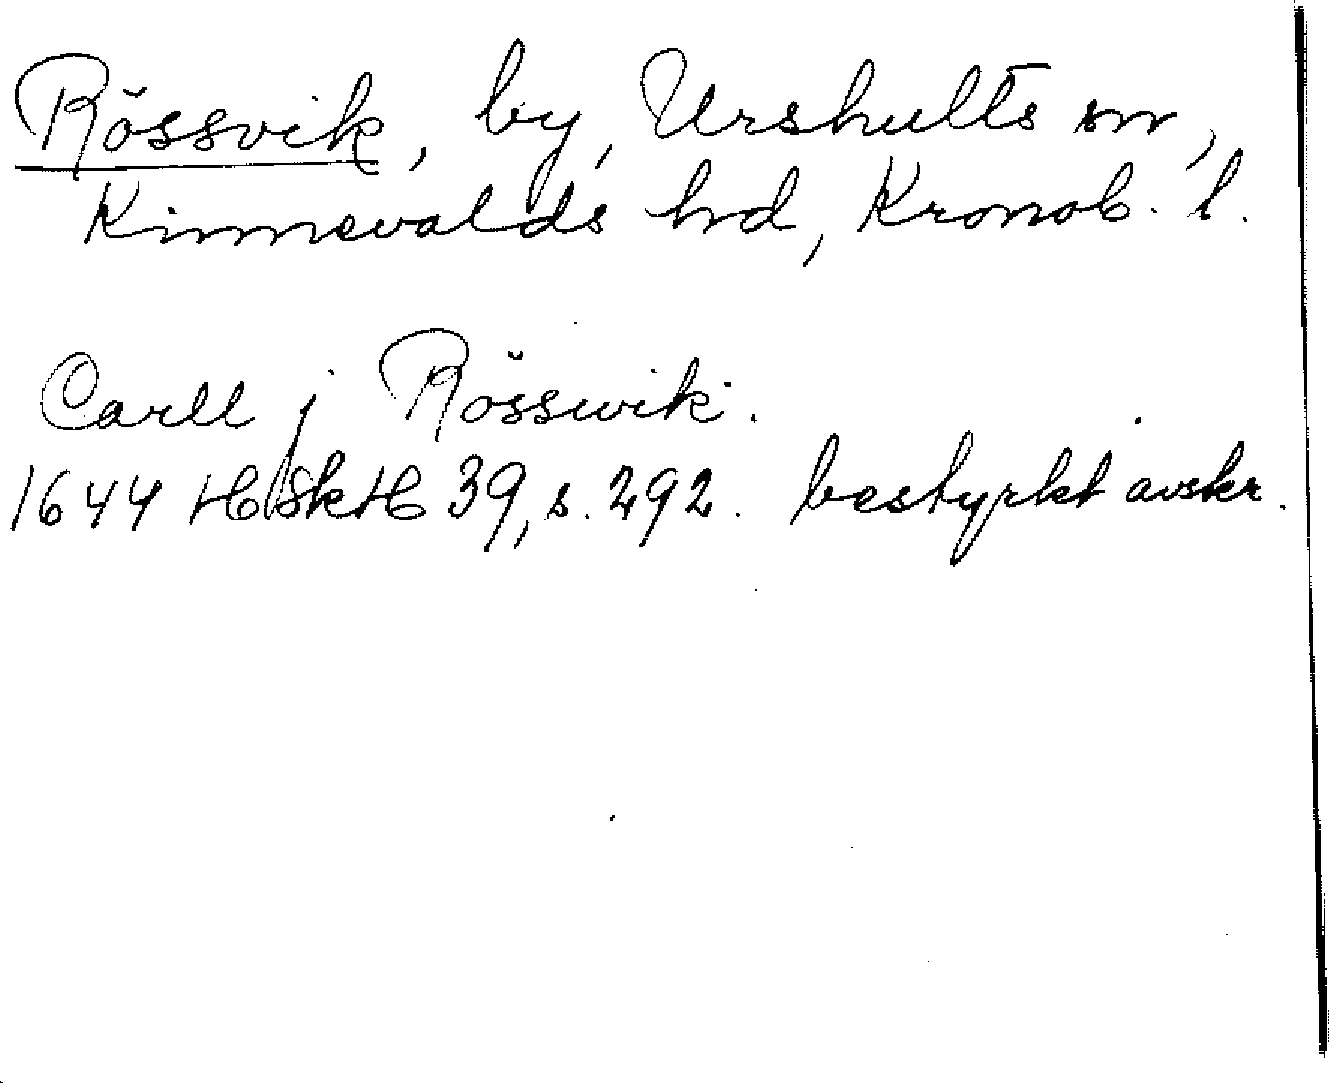 Rössvik, by, Urshults sn,
Kinnevalds hd, Kronob. l.
Carll j Rösswik.
1644 HSkH 39, s. 292. bestyrkt avskr.